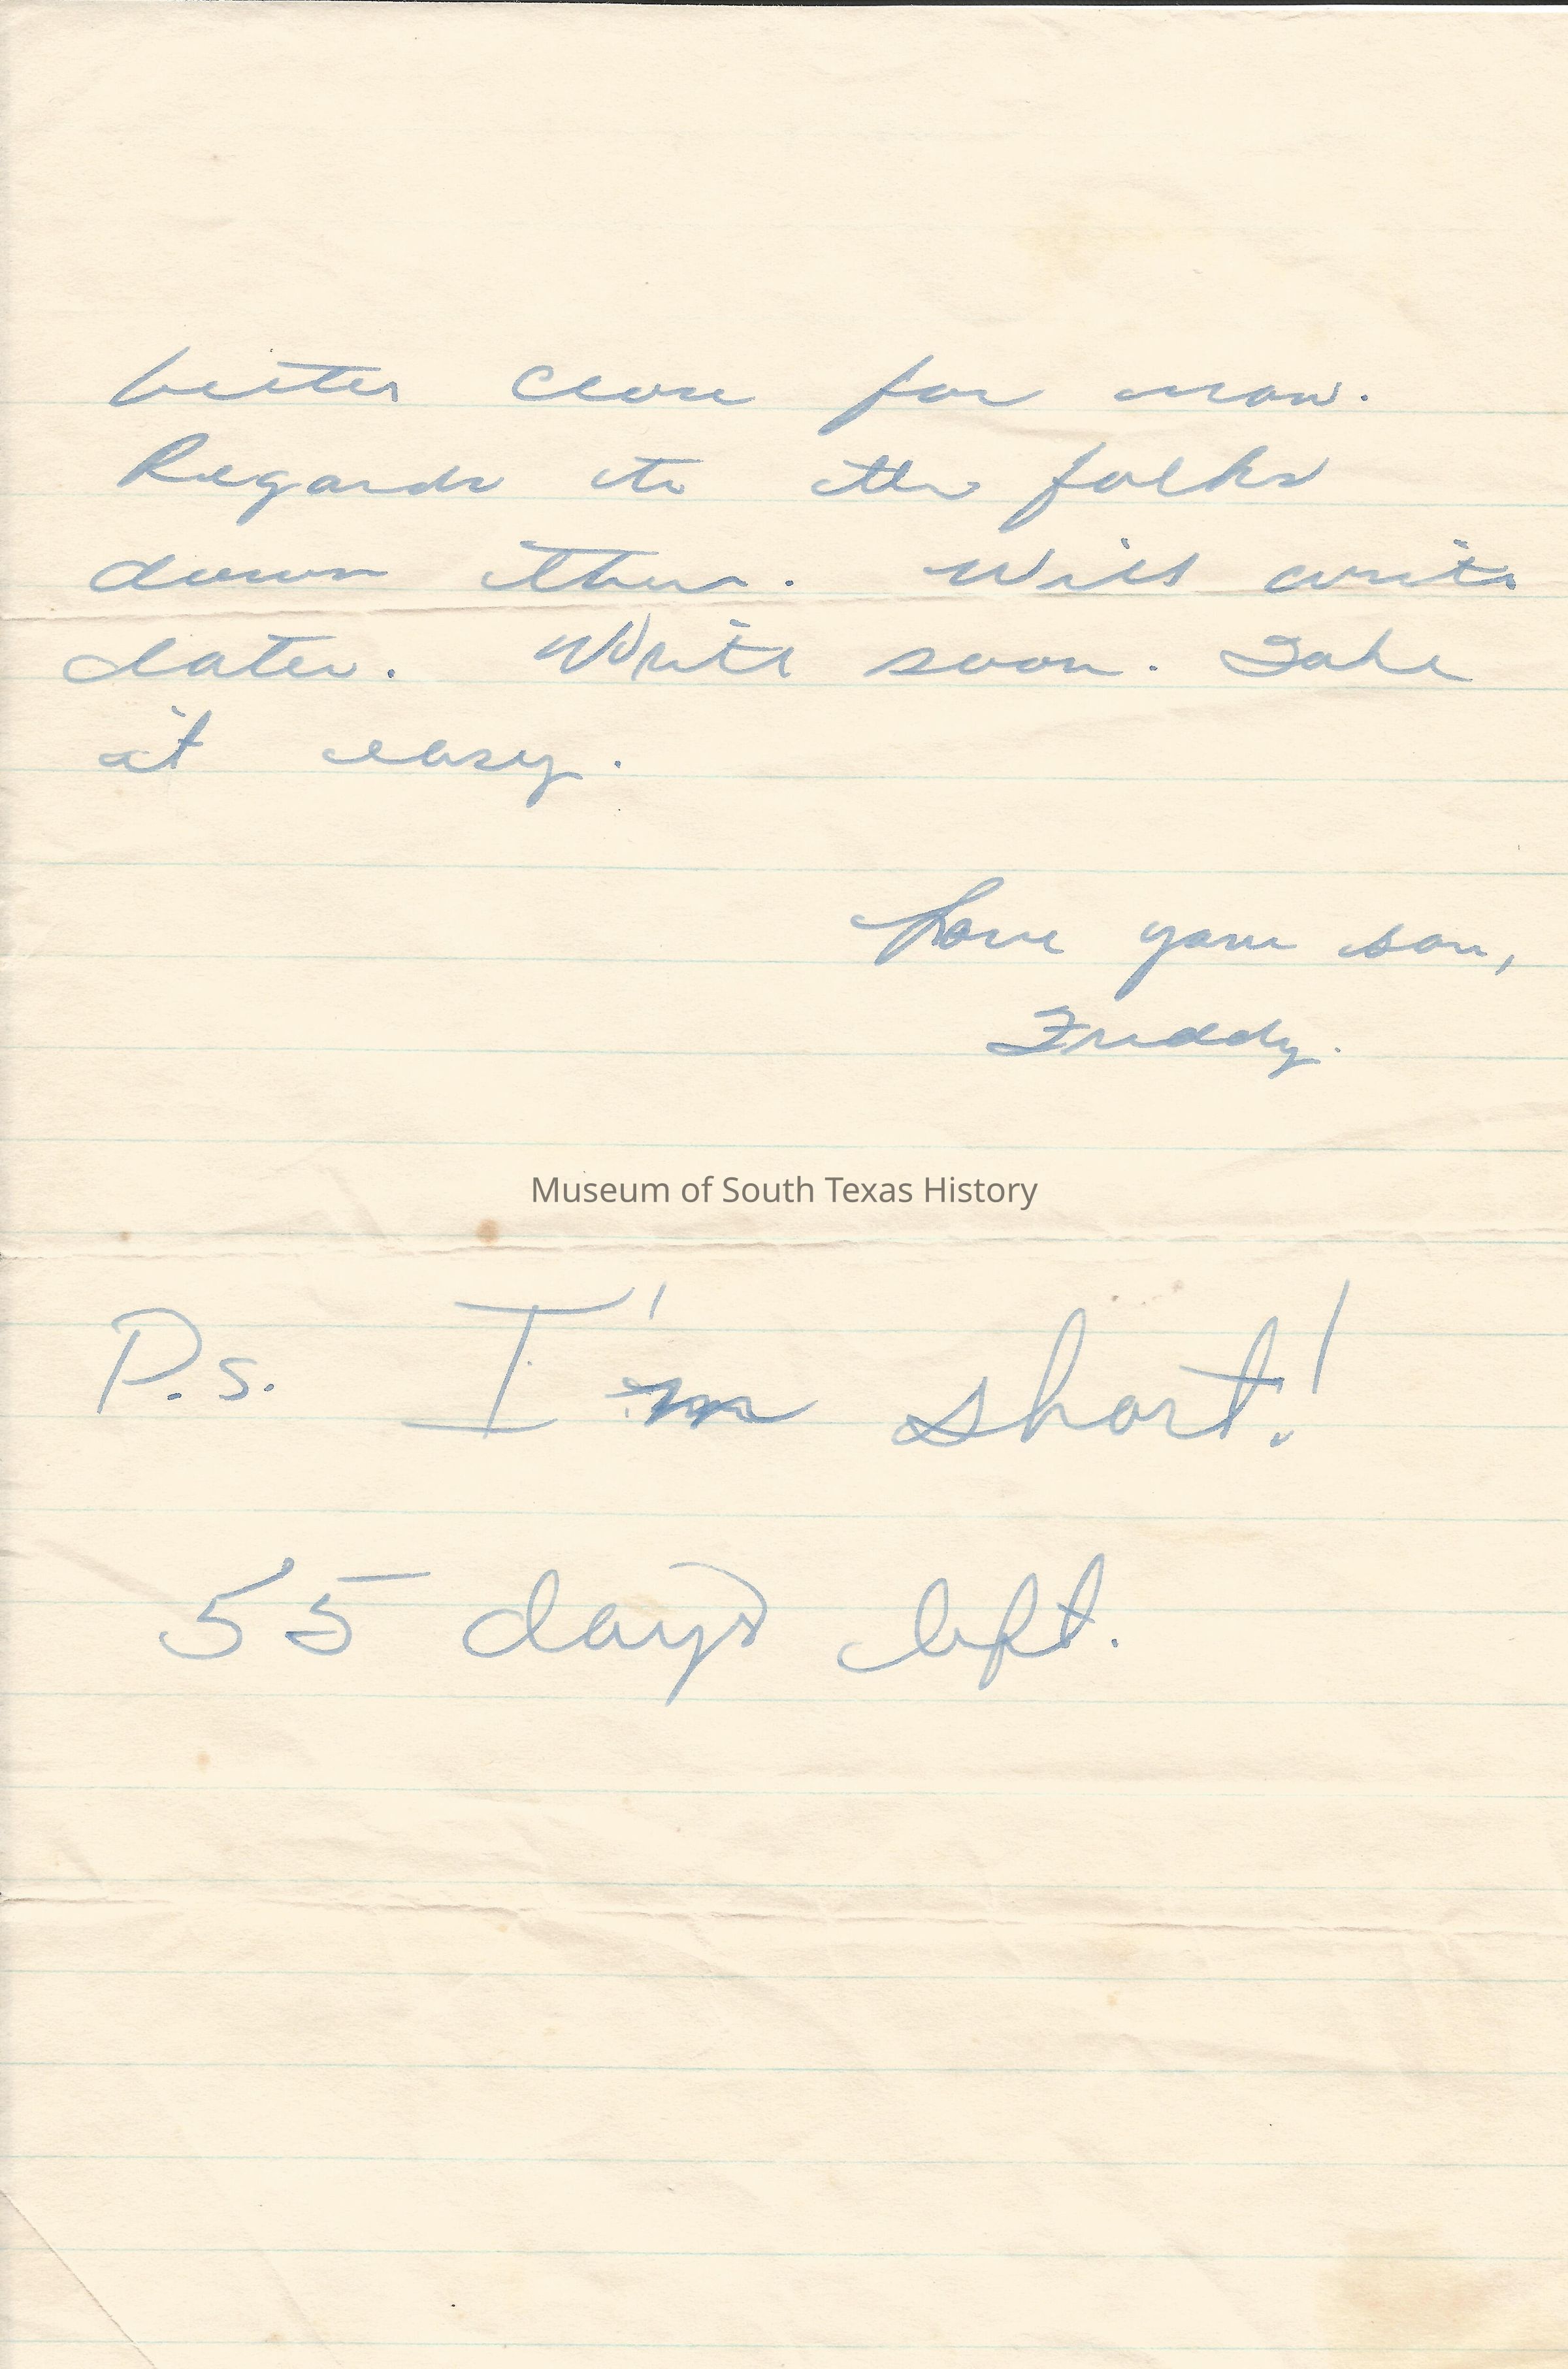 better close for now.
Regards to the folks
down there. Will write
later. Write soon. Take
it easy.
Love your son,
Freddy.
Museum of South Texas History
P.S. I'm short!
55 days left.